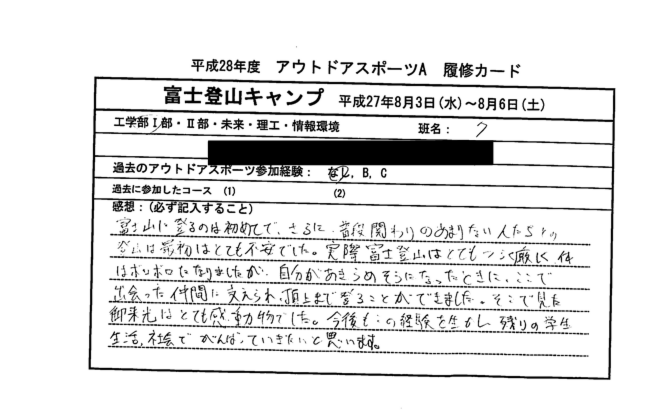 平成28年度 アウトドアスポーツA 履修カード
富士登山キャンプ 平成27年8月3日(水)～8月6日(土)
工学部Ⅰ部・Ⅱ部・未来・理工・情報環境 班名： ク
過去のアウトドアスポーツ参加経験： なし, B, C
過去に参加したコース (1) (2)
感想：(必ず記入すること)
富士山に登るのは初めてで、さらに、普段関わりのあまりない人たちとの
登山は最初はとても不安でした。実際富士登山はとてもつらく厳しく体
はボロボロになりましたが、自分があきらめそうになったときに、ここで
出会った仲間に支えられ、頂上まで登ることができました。そこで見た
御来光はとても感動物でした。今後もこの経験を生かし、残りの学生
生活、社会でがんばっていきたいと思います。